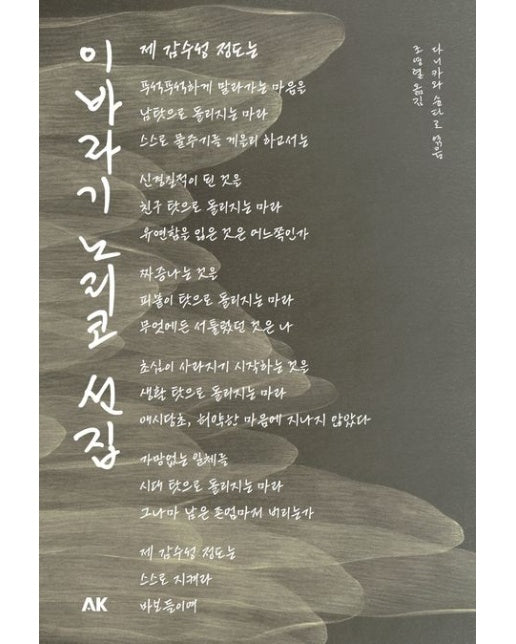 이바라기 노리코 선집
다니카와 슌타로 엮음
조영렬 옮김
제 감수성 정도는
푸석푸석하게 말라가는 마음을
남탓으로 돌리지는 마라
스스로 물주기를 게을리 하고서는
신경질적이 된 것을
친구 탓으로 돌리지는 마라
유연함을 잃은 것은 어느쪽인가
짜증나는 것을
피붙이 탓으로 돌리지는 마라
무엇에든 서툴렀던 것은 나
초심이 사라지기 시작하는 것을
생활 탓으로 돌리지는 마라
애시당초, 허약한 마음에 지나지 않았다
가망없는 일체를
시대 탓으로 돌리지는 마라
그나마 남은 존엄마저 버리는가
제 감수성 정도는
스스로 지켜라
바보들이여
AK